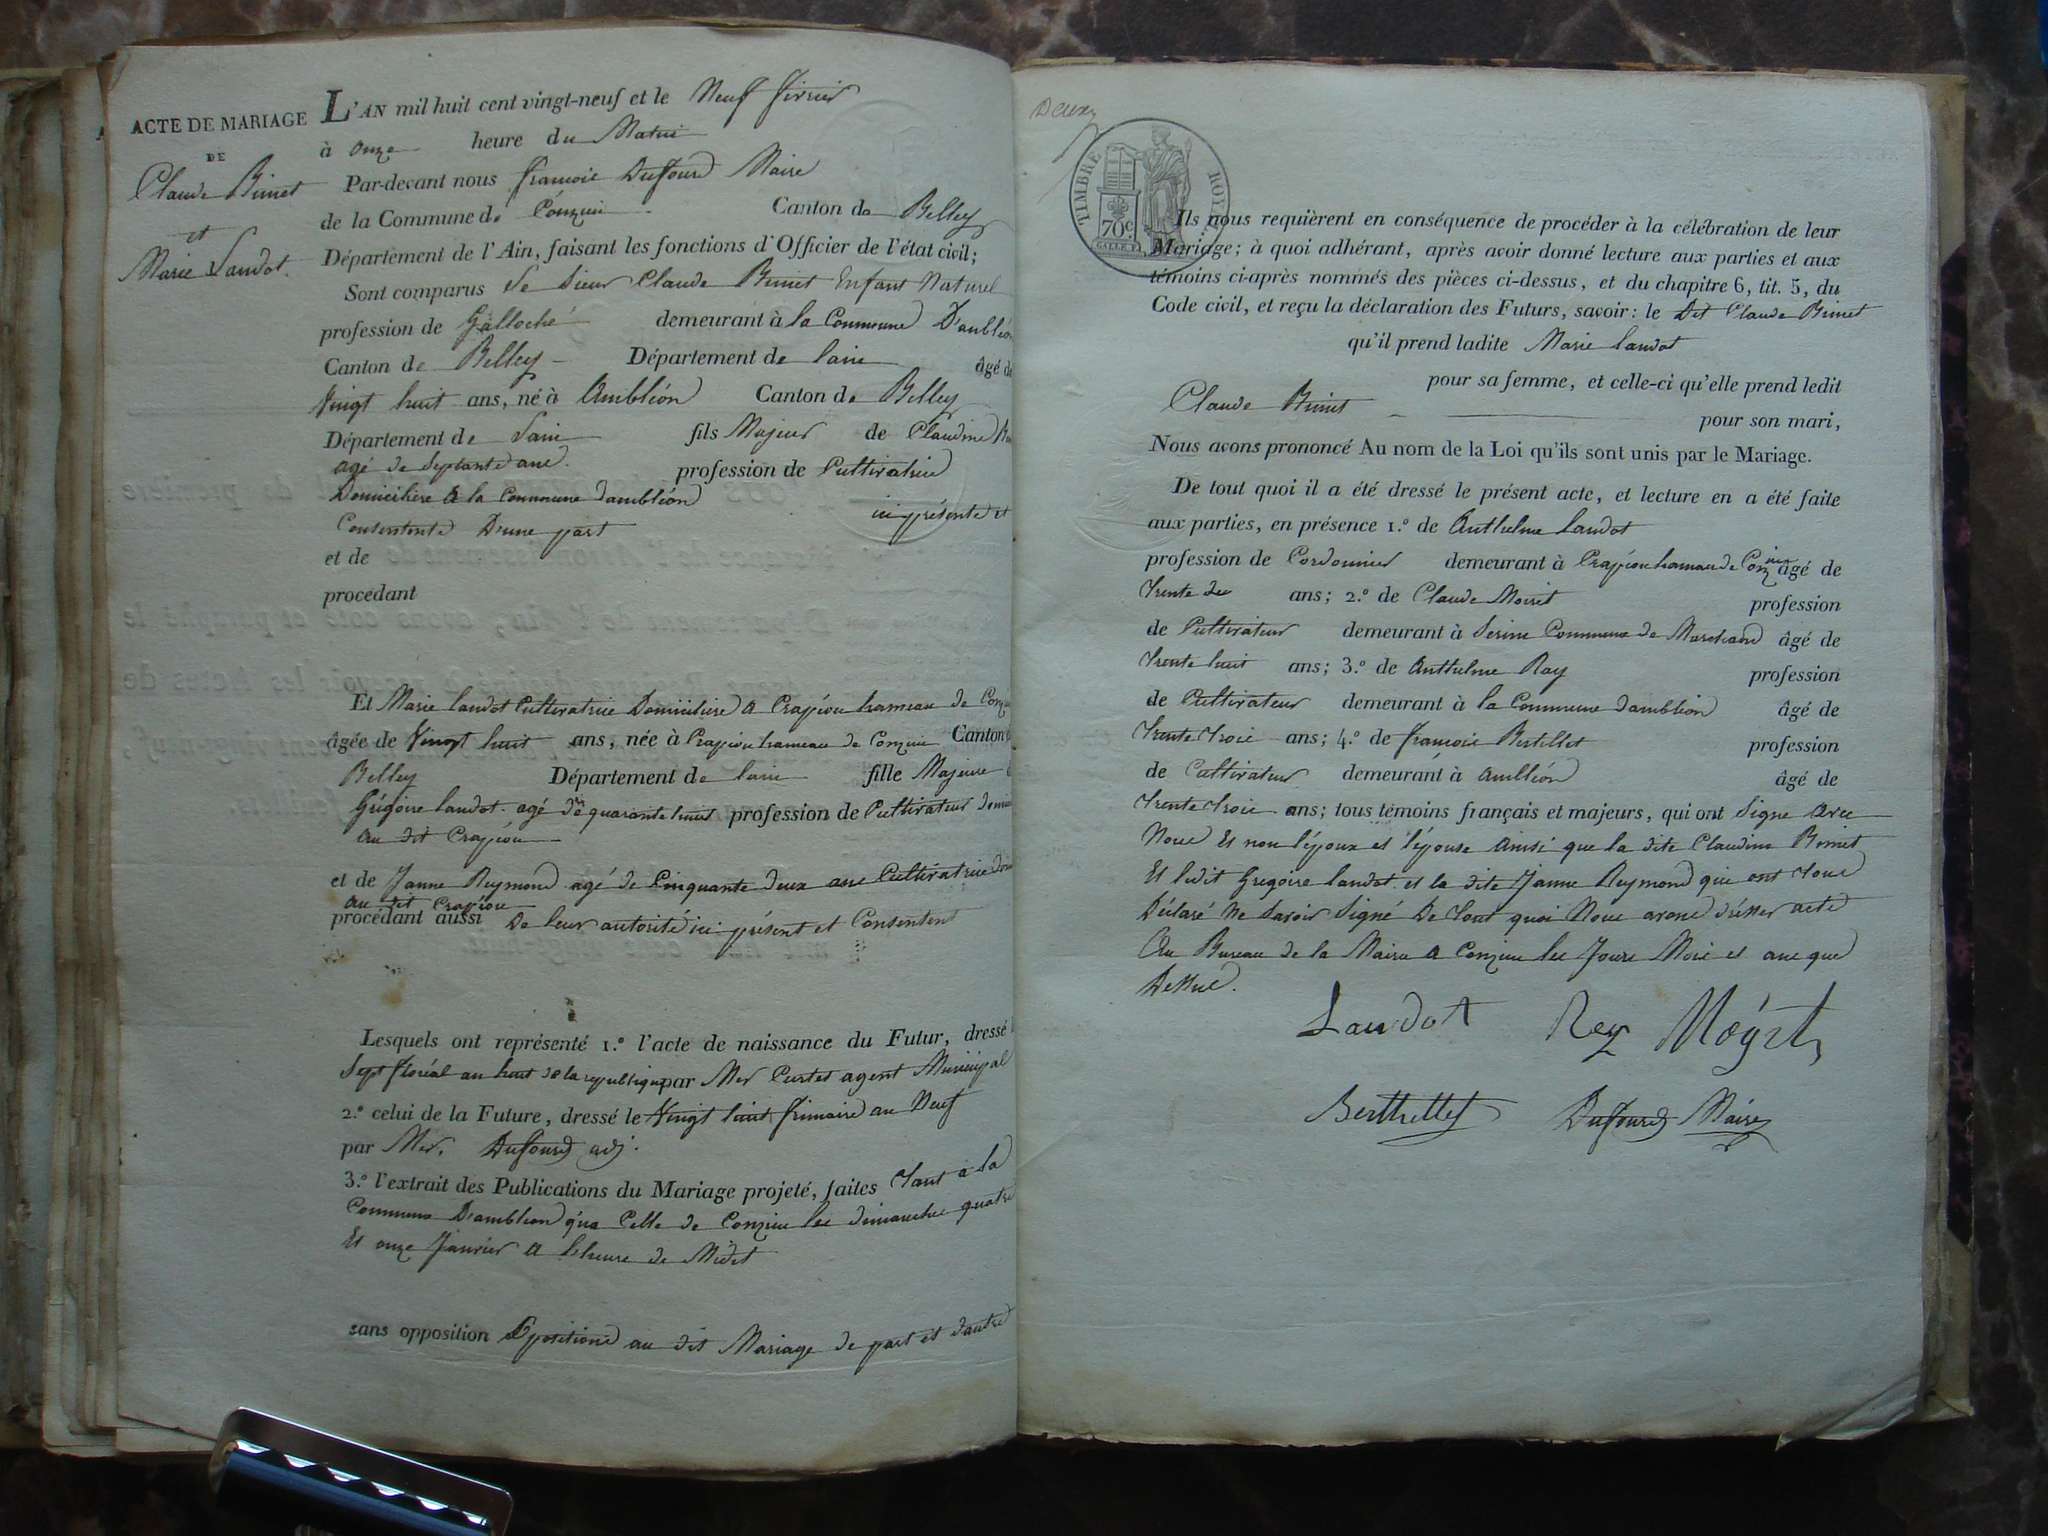 ACTE DE MARIAGE
DE
Claude Bimet
et
Marie Landot.
L'AN mil huit cent vingt-neuf et le Neuf fevrier
à onze heure du Matin
Par-devant nous francois Duffourd Maire
de la Commune de Conzieu Canton de Belley
Département de l'Ain, faisant les fonctions d'Officier de l'état civil;
Sont comparus Le Sieur Claude Bimet Enfant Naturel
profession de Galloché demeurant à la Commune D'ambléon
Canton de Belley Département de lain âgé de
Vingt huit ans, né à Ambléon Canton de Belley
Département de Lain fils Majeur de Claudine
agé de Septante ans. profession de Cultivatrice
Domicilière a la Commune dambléon ici présente et
Consentente D'une part
et de
procédant
Et Marie landot Cultivatrice Domicilière a Crapéou hameau de
âgée de Vingt huit ans, née à Crapéou hameau de Conzieu Canton
Belley Département de lain fille Majeure
Grégoire landot agé de quarante huit profession de Cultivateur
au dit Crapéou
et de Janne Reymond agé de Cinquante deux ans Cultivatrice
au dit Crapéou
procédant aussi De leur autorité ici présent et Consentent
Lesquels ont représenté 1.º l'acte de naissance du Futur, dressé
Sept floréal an huit de la republique par Mer Curtet agent Municipal
2.º celui de la Future, dressé le Vingt huit frimaire an Neuf
par Mer. Duffourd adj.
3.º l'extrait des Publications du Mariage projeté, faites tant a la
Commune D'ambleon qua Celle de Conzieu les dimanches quatre
Et onze Janvier a lheure de Midit
sans opposition Opositions au dit Mariage de part et dautre
Deux
TIMBRE ROYAL
70 c.
Ils nous requièrent en conséquence de procéder à la célébration de leur
Mariage; à quoi adhérant, après avoir donné lecture aux parties et aux
témoins ci-après nommés des pièces ci-dessus, et du chapitre 6, tit. 5, du
Code civil, et reçu la déclaration des Futurs, savoir: le Dit Claude Bimet
qu'il prend ladite Marie landot
pour sa femme, et celle-ci qu'elle prend ledit
Claude Bimet pour son mari,
Nous avons prononcé Au nom de la Loi qu'ils sont unis par le Mariage.
De tout quoi il a été dressé le présent acte, et lecture en a été faite
aux parties, en présence 1.º de Anthelme landot
profession de Cordonnier demeurant à Crapéou hameau de Conzieu âgé de
trente dix ans; 2.º de Claude Moiret profession
de Cultivateur demeurant à Serine Commune de Marchand âgé de
trente huit ans; 3.º de Anthelme Ray profession
de Cultivateur demeurant à la Commune dambleon âgé de
trente trois ans; 4.º de francois Bertillet profession
de Cultivateur demeurant à Ambléon âgé de
trente trois ans; tous témoins français et majeurs, qui ont Signe avec
Nous Et non l'époux et l'épouse ainsi que la dite Claudine Bimet
Et ledit Gregoire landot et la dite Janne Reymond qui ont tous
Déclaré Ne Savoir Signé De tout quoi Nous avons dresser acte
Au Bureau de la Mairie a Conzieu les Jours Mois et ans que
Dessus.
Landot Rey Moyret
Berthellet Duffourd Maire